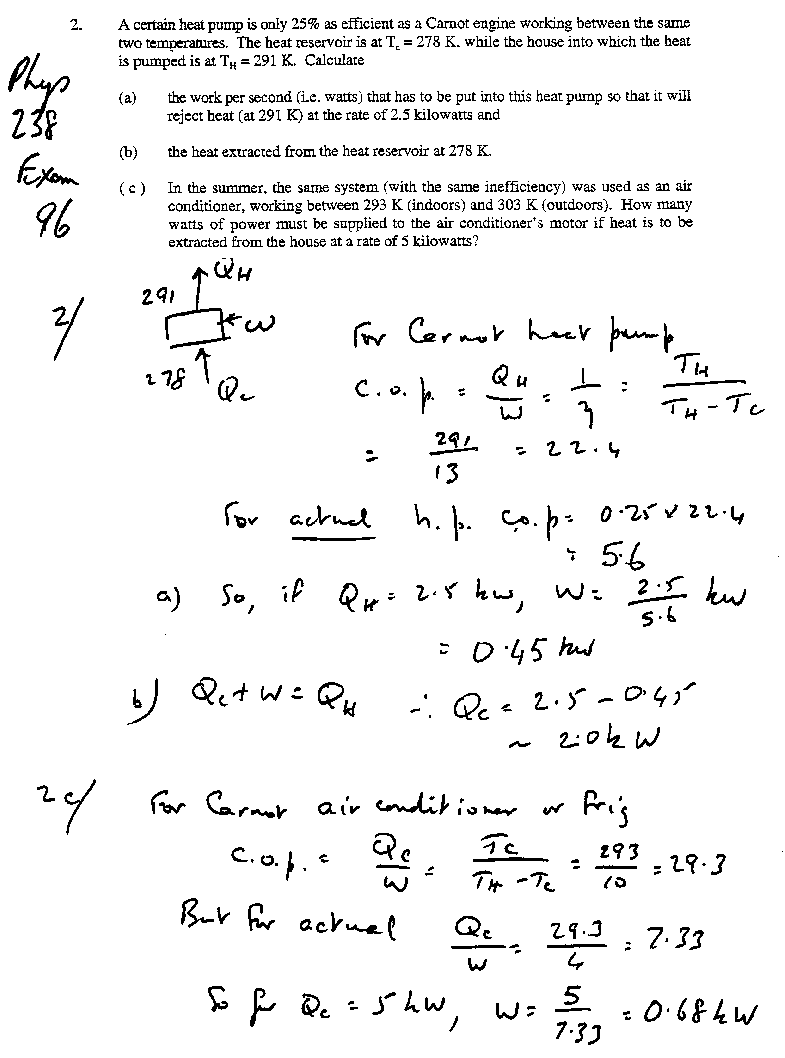 2. A certain heat pump is only 25% as efficient as a Carnot engine working between the same
two temperatures. The heat reservoir is at T_c = 278 K, while the house into which the heat
is pumped is at T_H = 291 K. Calculate
(a) the work per second (i.e. watts) that has to be put into this heat pump so that it will
reject heat (at 291 K) at the rate of 2.5 kilowatts and
(b) the heat extracted from the heat reservoir at 278 K.
(c) In the summer, the same system (with the same inefficiency) was used as an air
conditioner, working between 293 K (indoors) and 303 K (outdoors). How many
watts of power must be supplied to the air conditioner's motor if heat is to be
extracted from the house at a rate of 5 kilowatts?
Phys
238
Exam
96
2/
Q_H
291
W
278
Q_c
For Carnot heat pump
c.o.p. = Q_H/W = 1/η = T_H/(T_H - T_C)
= 291/13 = 22.4
For actual h.p. c.o.p = 0.25 x 22.4
= 5.6
a) So, if Q_H = 2.5 kw, W = 2.5/5.6 kw
= 0.45 kw
b) Q_c + W = Q_H ∴ Q_c = 2.5 - 0.45
~ 2.0 kW
2c/ For Carnot air conditioner or frig
c.o.p. = Q_c/W = T_c/(T_H - T_c) = 293/10 = 29.3
But for actual Q_c/W = 29.3/4 = 7.33
So for Q_c = 5 kW, W = 5/7.33 = 0.68 kW